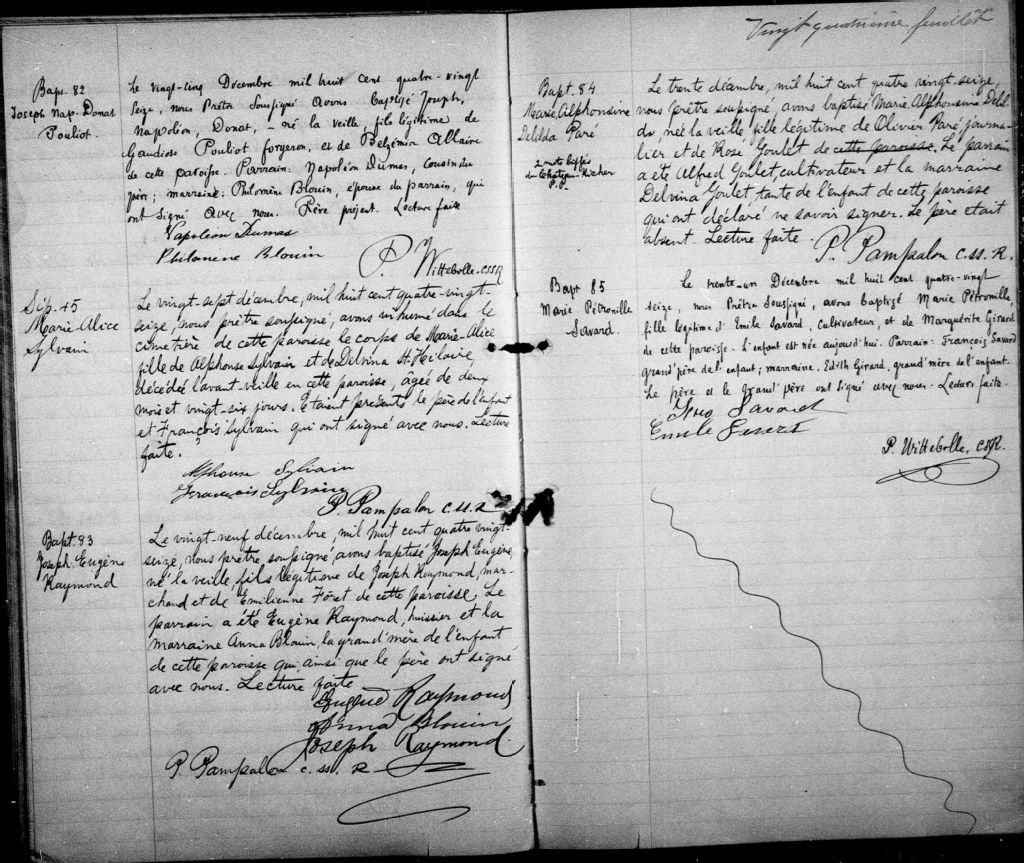 Bapt. 82
Joseph Nap. Donat
Pouliot.
Le vingt-cinq Décembre mil huit cent quatre-vingt
seize, nous Prêtre soussigné avons baptisé Joseph,
Napoléon, Donat, - né la veille, fils légitime de
Gaudiose Pouliot forgeron, et de Belzémia Allaire
de cette paroisse. Parrain: Napoléon Dumas, cousin du
père; marraine: Philomène Blouin, épouse du parrain, qui
ont signé avec nous. Père présent. Lecture faite
Napoleon Dumas
Philomene Blouin
P. Wittebolle. CSSR
Sép. 45
Marie-Alice
Sylvain
Le vingt-sept décembre, mil huit cent quatre-vingt-
seize, nous prêtre soussigné, avons inhumé dans le
cimetière de cette paroisse le corps de Marie-Alice
fille de Alphonse Sylvain et de Delvina St. Hilaire
décédée l'avant-veille en cette paroisse, agée de deux
mois et vingt-six jours. Etaient présents le père de l'enfant
et François Sylvain qui ont signé avec nous. Lecture
faite.
Alphonse Sylvain
François Sylvain
P. Pampalon C.SS.R
Bapt. 83
Joseph Eugène
Raymond
Le vingt-neuf décembre, mil huit cent quatre vingt-
seize, nous prêtre soussigné avons baptisé Joseph Eugène,
né la veille fils légitime de Joseph Raymond, mar-
chand et de Emilienne Foret de cette paroisse. Le
parrain a été Eugène Raymond, huissier et la
marraine Anna Blouin, la grand'mère de l'enfant
de cette paroisse qui, ainsi que le père ont signé
avec nous. Lecture faite
Eugène Raymond
Anna Blouin
Joseph Raymond
P. Pampalon C. SS. R
Vingt quatrième feuillet
Bapt. 84
Marie Alphonsine
Delilda Paré
2 mots biffés
P.P.
Le trente décembre, mil huit cent quatre vingt-seize,
nous prêtre soussigné avons baptisé Marie Alphonsine Delil
da née la veille, fille légitime de Olivier Paré journa-
lier et de Rose Goulet de cette paroisse. Le parrain
a été Alfred Goulet, cultivateur et la marraine
Delvina Goulet, tante de l'enfant de cette paroisse
qui ont déclaré ne savoir signer. Le père etait
absent. Lecture faite.
P. Pampalon C.SS.R.
Bapt 85
Marie Pétronille
Savard.
Le trente-un Décembre mil huit cent quatre-vingt
seize, nous Prêtre soussigné, avons baptisé Marie Pétronille,
fille légitime d'Emile Savard, cultivateur, et de Marguérite Girard
de cette paroisse. L'enfant est née aujourd'hui. Parrain: François Savard
grand'père de l'enfant; marraine. Edith Girard, grand'mère de l'enfant.
Le père et le grand'père ont signé avec nous. Lecture faite.
Savard
Emile
P. Wittebolle, CSSR.